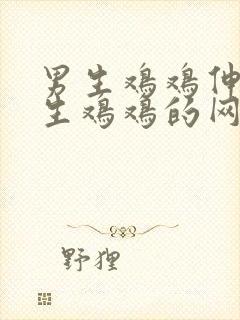 男生鸡鸡伸
生鸡鸡的网
野狸